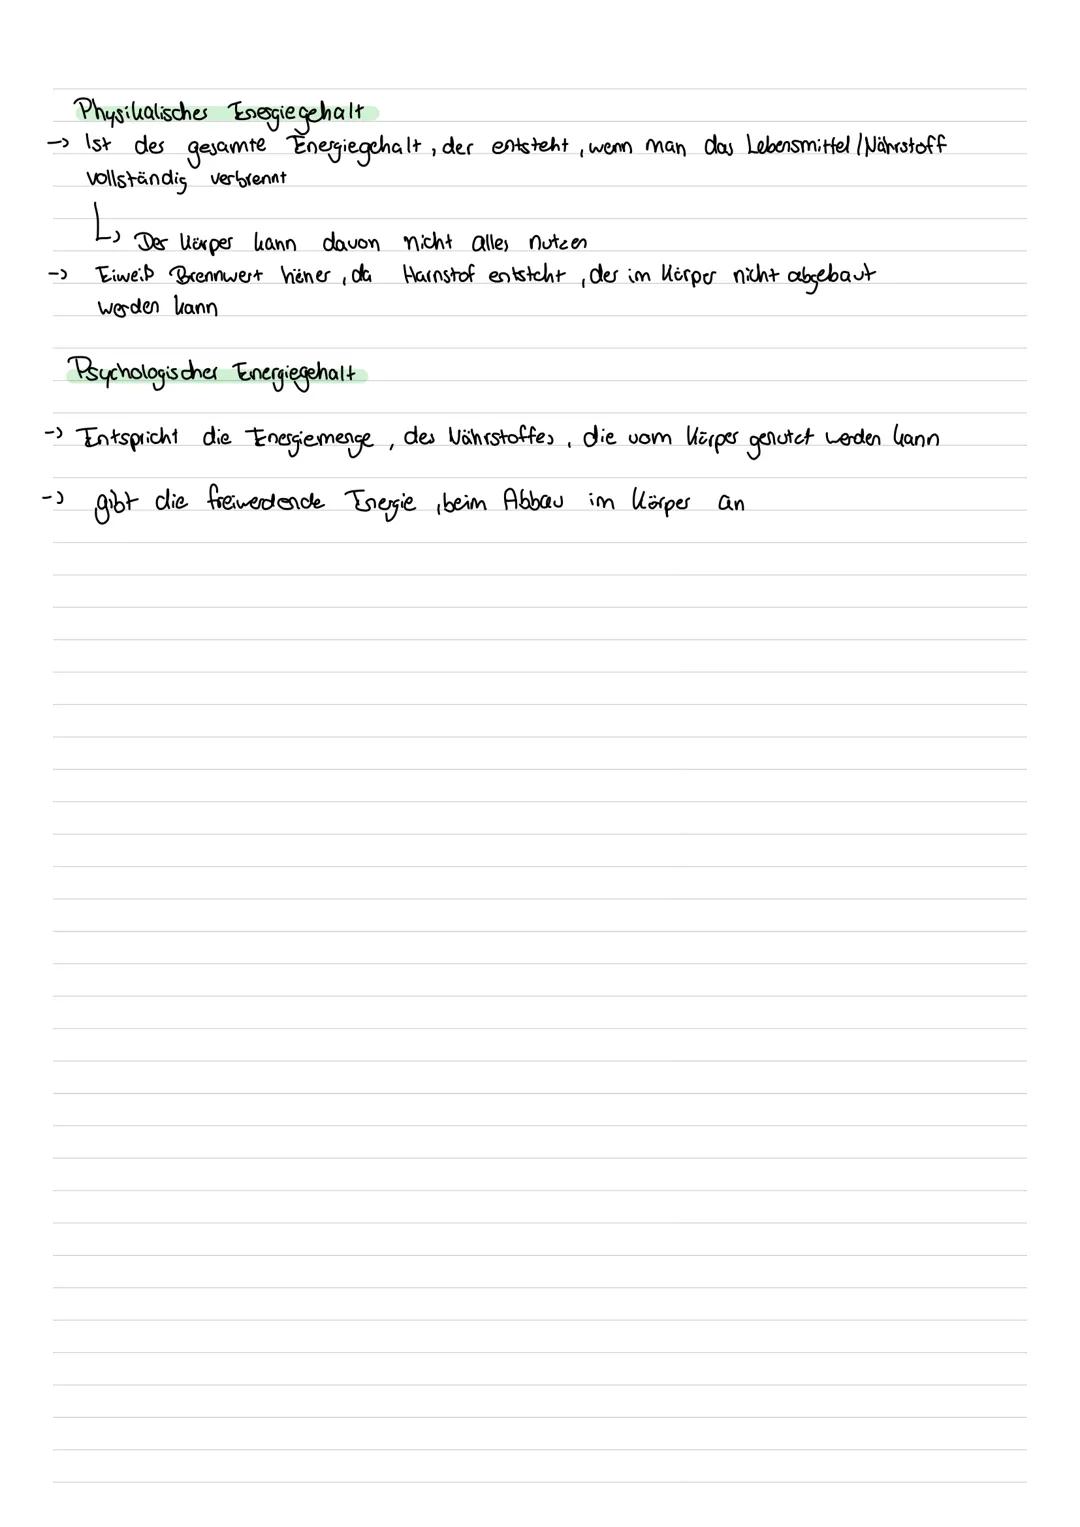 Physikalisches Energiegehalt
-> Ist der gesamte Energiegehalt, der entsteht, wenn man das Lebensmittel/Nährstoff
vollständig verbrennt
↳ Der Körper kann davon nicht alles nutzen
-> Eiweiß Brennwert höher, da Harnstof entsteht, der im Körper nicht abgebaut
werden kann
Psychologischer Energiegehalt
-> Entspricht die Energiemenge, des Nährstoffes, die vom Körper genutzt werden kann
-> gibt die freiwerdende Energie, beim Abbau im Körper an